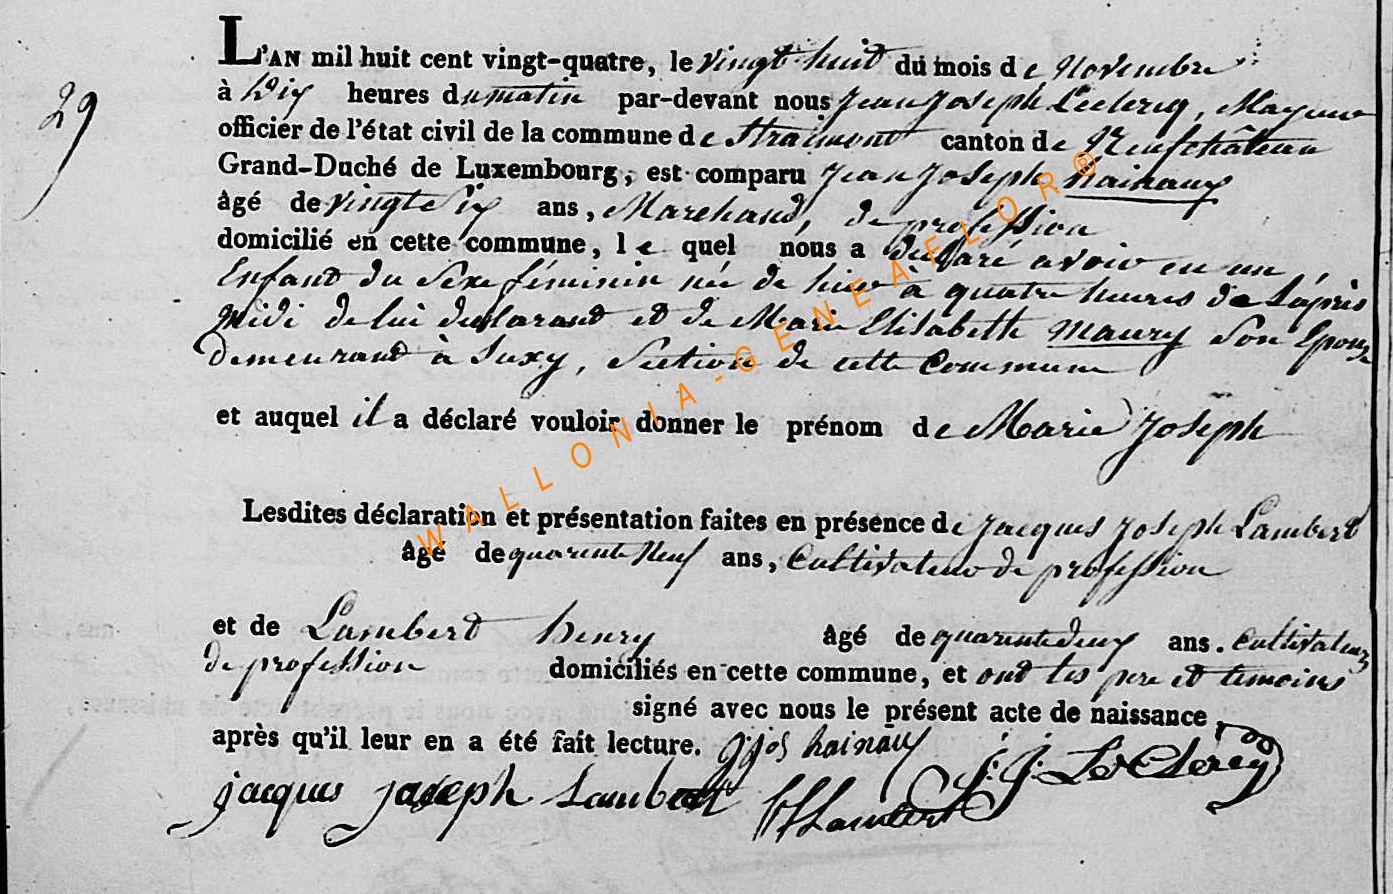 29
L'AN mil huit cent vingt-quatre, le vingt huit du mois de Novembre
à Dix heures du matin par-devant nous Jean Joseph Leclercq, Mayeur
officier de l'état civil de la commune de Straimont canton de Neufchâteau
Grand-Duché de Luxembourg, est comparu Jean Joseph Hainaux
âgé de vingt Six ans, Marchand, de profession
domicilié en cette commune, le quel nous a déclaré avoir eu un
Enfant du Sexe féminin née de hier à quatre heures de L'après
Midi de lui déclarant et de Marie Elisabeth Maury Son Epouse
Demeurant à Suxy, Section de cette Commune
et auquel il a déclaré vouloir donner le prénom de Marie Joseph
Lesdites déclaration et présentation faites en présence de Jacques Joseph Lambert
âgé de quarente Neuf ans, Cultivateur de profession
et de Lambert henry âgé de quarente deux ans. Cultivateur
de profession domiciliés en cette commune, et ont les pere et temoins
signé avec nous le présent acte de naissance,
après qu'il leur en a été fait lecture. J jos hainaux
J: J: Le Clercq
jacques joseph Lambert
H Lambert
WALLONIA-GENEAFLOR®